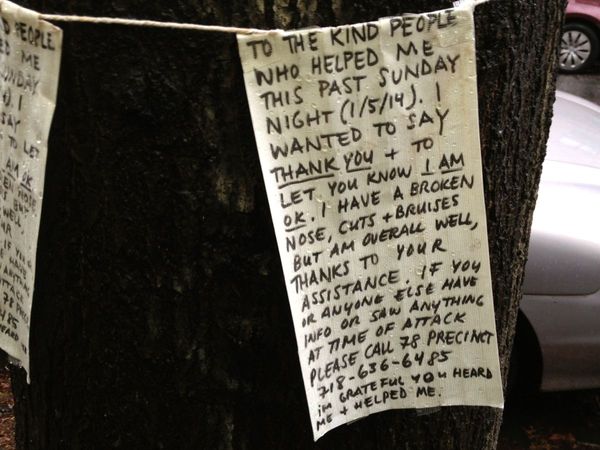 TO THE KIND PEOPLE
WHO HELPED ME
THIS PAST SUNDAY
NIGHT (1/5/14). I
WANTED TO SAY
THANK YOU + TO
LET YOU KNOW I AM
OK. I HAVE A BROKEN
NOSE, CUTS + BRUISES
BUT AM OVERALL WELL,
THANKS TO YOUR
ASSISTANCE. IF YOU
OR ANYONE ELSE HAVE
INFO OR SAW ANYTHING
AT TIME OF ATTACK
PLEASE CALL 78 PRECINCT
718-636-6485
IM GRATEFUL YOU HEARD
ME + HELPED ME.
PEOPLE
ED ME
NDAY
I
SAY
TO LET
I AM OK
WELL
IF YOU
78 P
HEARD